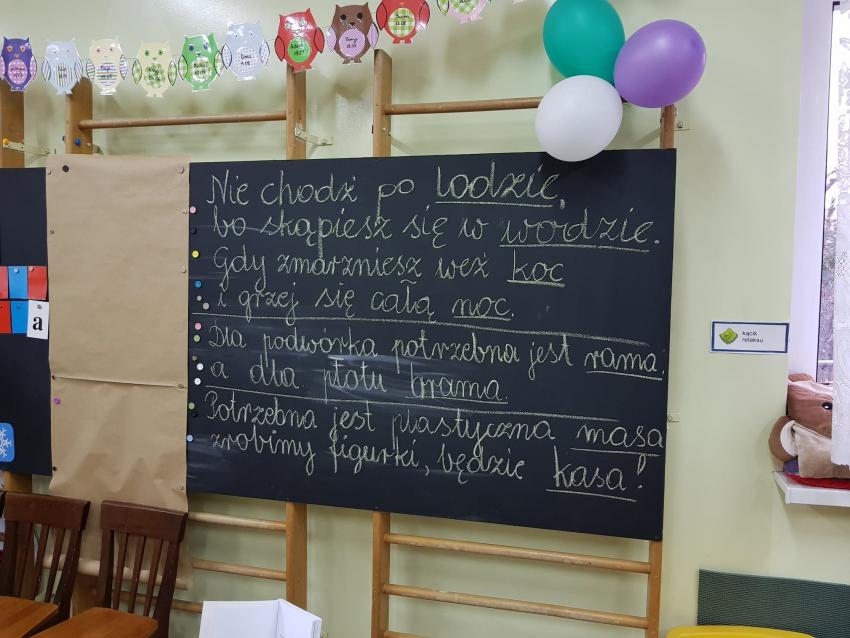 Nie chodź po lodzie,
bo skąpiesz się w wodzie.
Gdy zmarzniesz weź koc
i grzej się całą noc.
Dla podwórka potrzebna jest rama.
a dla płotu brama.
Potrzebna jest plastyczna masa
zrobimy figurki, będzie kasa!
kącik
relaksu
a